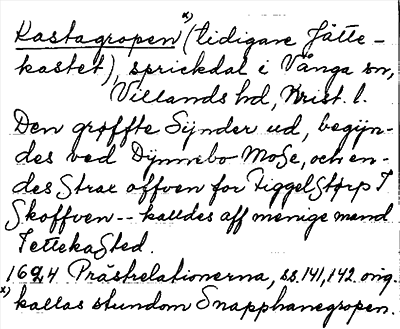 Kastagropen x) (tidigare Jätte-
kastet), sprickdal i Vånga sn,
Villands hd, Krist. l.
Den groffte Sÿnder ud, begÿn-
des ved Dÿnnebo Mose, och en-
des Strax offven for Tiggelstorp I
Skoffven -- kalldes aff menige mand
JettekaSted.
1624 Prästrelationerna, ss. 141, 142. orig.
x) kallas stundom Snapphanegropen.